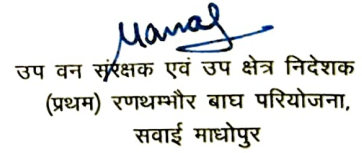 उप वन संरक्षक एवं उप क्षेत्र निदेशक
(प्रथम) रणथम्भौर बाघ परियोजना,
सवाई माधोपुर